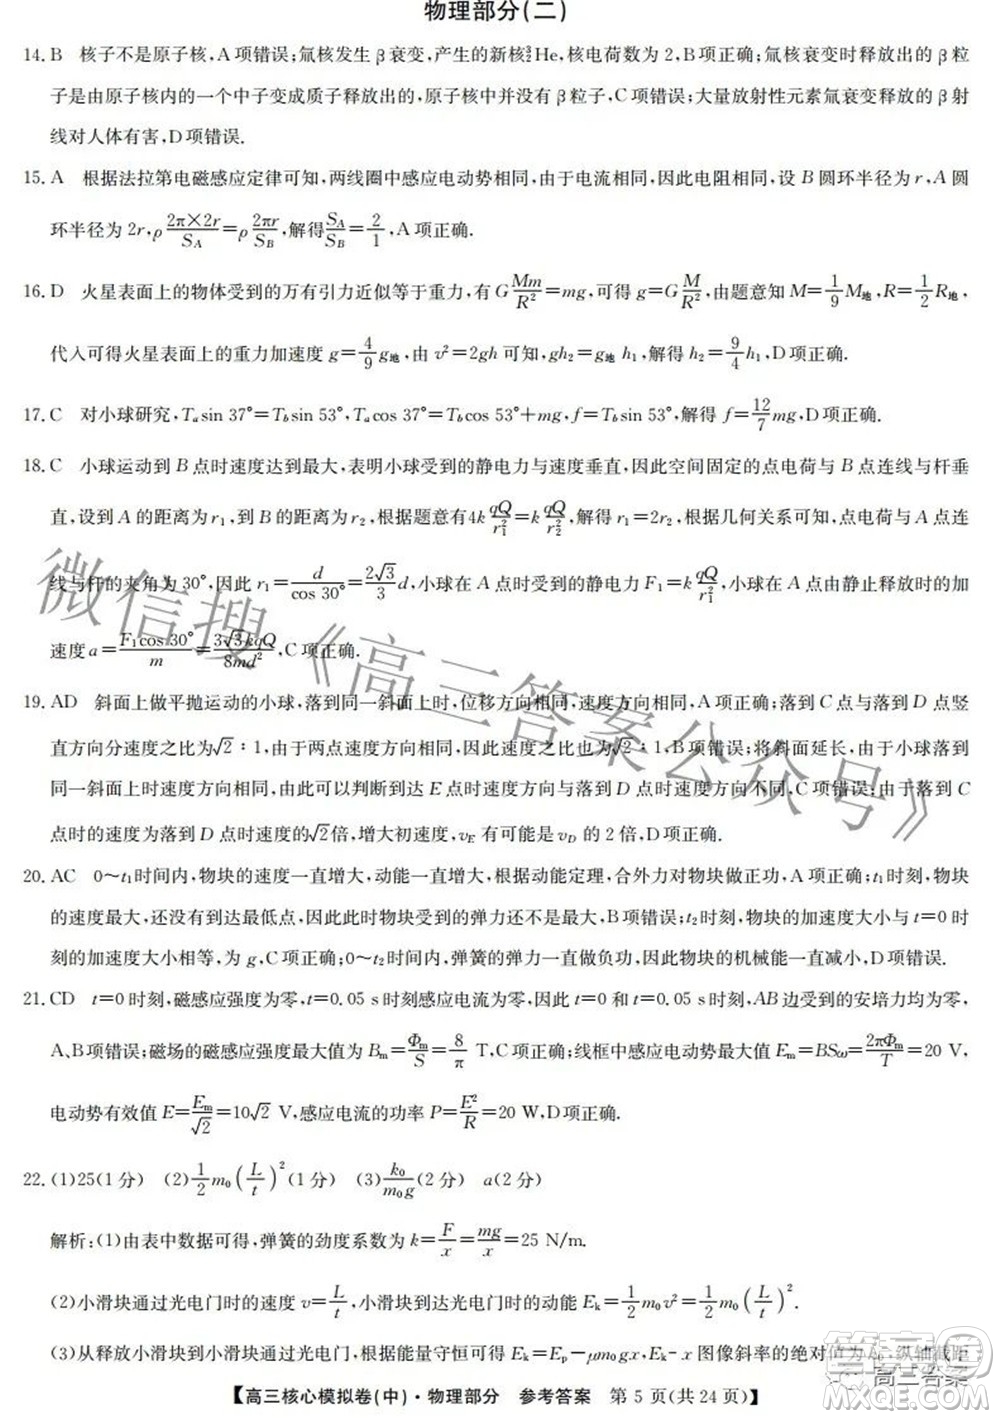 物理部分(二)
14. B 核子不是原子核,A项错误;氚核发生β衰变,产生的新核³₂He,核电荷数为2,B项正确;氚核衰变时释放出的β粒
子是由原子核内的一个中子变成质子释放出的,原子核中并没有β粒子,C项错误;大量放射性元素氚衰变释放的β射
线对人体有害,D项错误.
15. A 根据法拉第电磁感应定律可知,两线圈中感应电动势相同,由于电流相同,因此电阻相同,设B圆环半径为r,A圆
环半径为2r,ρ(2π×2r)/S_A=ρ(2πr)/S_B,解得S_A/S_B=2/1,A项正确.
16. D 火星表面上的物体受到的万有引力近似等于重力,有G Mm/R²=mg,可得g=G M/R²,由题意知M=1/9 M地,R=1/2 R地,
代入可得火星表面上的重力加速度g=4/9 g地,由v²=2gh可知,gh₂=g地 h₁,解得h₂=9/4 h₁,D项正确.
17. C 对小球研究,Tₐsin 37°=T_b sin 53°,Tₐcos 37°=T_b cos 53°+mg,f=T_b sin 53°,解得f=12/7 mg,D项正确.
18. C 小球运动到B点时速度达到最大,表明小球受到的静电力与速度垂直,因此空间固定的点电荷与B点连线与杆垂
直,设到A的距离为r₁,到B的距离为r₂,根据题意有4k qQ/r₁²=k qQ/r₂²,解得r₁=2r₂,根据几何关系可知,点电荷与A点连
线与杆的夹角为30°,因此r₁=d/cos 30°=2√3/3 d,小球在A点时受到的静电力F₁=k qQ/r₁²,小球在A点由静止释放时的加
速度a=F₁cos 30°/m=3√3kqQ/8md²,C项正确.
19. AD 斜面上做平抛运动的小球,落到同一斜面上时,位移方向相同,速度方向相同,A项正确;落到C点与落到D点竖
直方向分速度之比为√2∶1,由于两点速度方向相同,因此速度之比也为√2∶1,B项错误;将斜面延长,由于小球落到
同一斜面上时速度方向相同,因此可以判断到达E点时速度方向与落到D点时速度方向不同,C项错误;由于落到C
点时的速度为落到D点时的√2倍,增大初速度,v_E有可能是v_D的2倍,D项正确.
20. AC 0～t₁时间内,物块的速度一直增大,动能一直增大,根据动能定理,合外力对物块做正功,A项正确;t₁时刻,物块
的速度最大,还没有到达最低点,因此此时物块受到的弹力还不是最大,B项错误;t₂时刻,物块的加速度大小与t=0时
刻的加速度大小相等,为g,C项正确;0～t₂时间内,弹簧的弹力一直做负功,因此物块的机械能一直减小,D项错误.
21. CD t=0时刻,磁感应强度为零,t=0.05 s时刻感应电流为零,因此t=0和t=0.05 s时刻,AB边受到的安培力均为零,
A、B项错误;磁场的磁感应强度最大值为Bₘ=Φₘ/S=8/π T,C项正确;线框中感应电动势最大值Eₘ=BSω=2πΦₘ/T=20 V,
电动势有效值E=Eₘ/√2=10√2 V,感应电流的功率P=E²/R=20 W,D项正确.
22. (1)25(1分) (2)1/2 m₀(L/t)²(1分) (3)k₀/m₀g(2分) a(2分)
解析:(1)由表中数据可得,弹簧的劲度系数为k=F/x=mg/x=25 N/m.
(2)小滑块通过光电门时的速度v=L/t,小滑块到达光电门时的动能Eₖ=1/2 m₀v²=1/2 m₀(L/t)².
(3)从释放小滑块到小滑块通过光电门,根据能量守恒可得Eₖ=Eₚ-μm₀gx,Eₖ-x图像斜率的绝对值为k₀,纵轴截距
【高三核心模拟卷(中)·物理部分 参考答案 第5页(共24页)】
微信搜《高三答案公众号》
高三答案